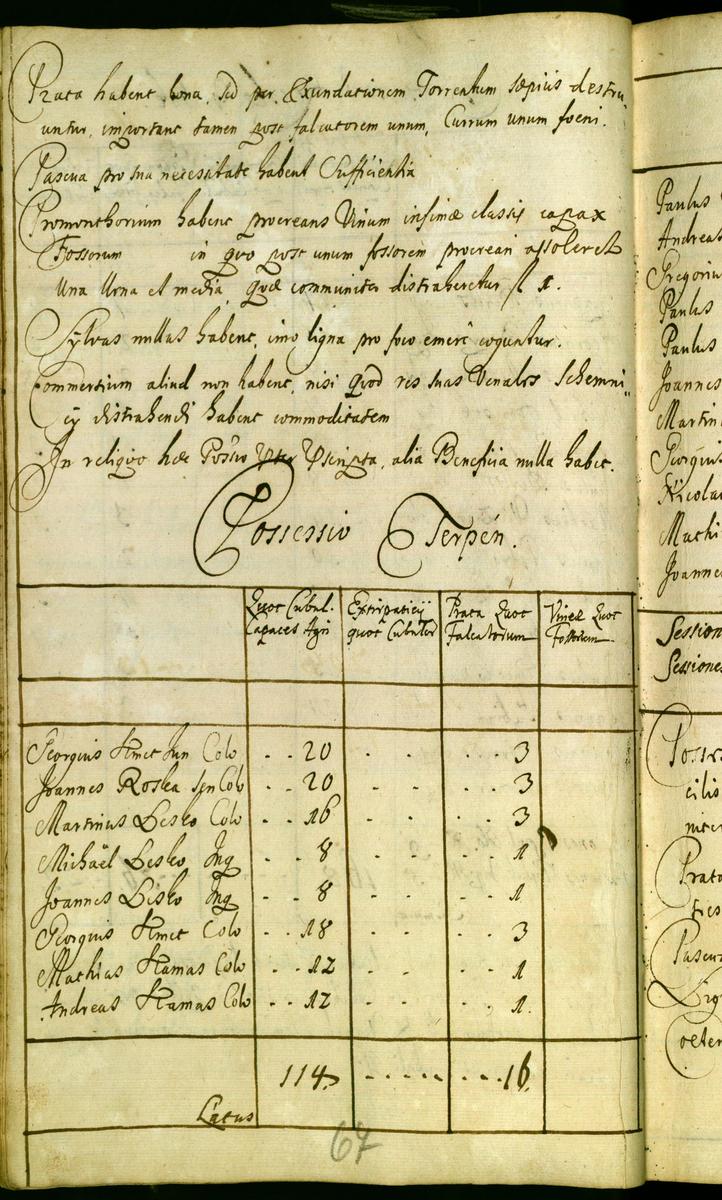 Prata habent bona, sed per Exundationem Torrentum sæpius destru
untur, important tamen post falcatorem unum, Currum unum foeni.
Pascua pro sua necessitate habent Sufficientia
Promonthorium habent procreans Vinum infimæ classis capax
Fossorum in quo post unum fossorem procreari assoleret
Una Urna et media, quæ communiter distraheretur fl 1.
Sylvas nullas habent, imo ligna pro foco emere coguntur.
Commertium aliud non habent, nisi quod res suas Venales Schemni„
cy distrahendi habent commoditatem
In reliquo hæc Possio alia Beneficia nulla habet.
Possessio Terpén.
Quot Cubul. Capaces Agri
Extirpatitij quot Cubulor
Prata Quot Falcatorum
Vineæ Quot Fossorum
Georgius Hmet Jun Colo . . 20 . . . . . 3
Joannes Roska Sen Colo . . 20 . . . . . 3
Martinus Lesko Colo . . 16 . . . . . 3
Michaël Lesko Inq . . 8 . . . . 1
Joannes Lesko Inq . . 8 . . . . 1
Georgius Hmet Colo . . 18 . . . . . 3
Mathias Hamas Colo . . 12 . . . . 1
Andreas Hamas Colo . . 12 . . . . . 1.
Latus 114 . . . . . . . . . 16.
67
Paulus
Andreas
Gregorius
Paulus
Paulus
Joannes
Martin
Georgius
Nicola
Mathi
Joanne
Session
Sessiones
Posses
cilis
niter
Prata
tres
Pascua
Lig
Coeter